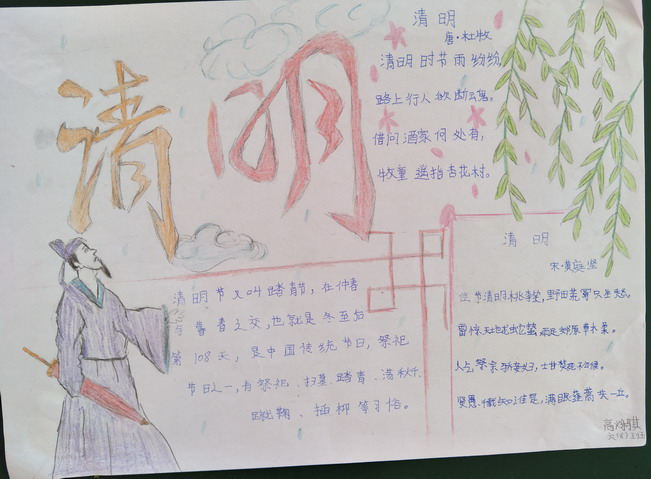 清明
清明
唐·杜牧
清明时节雨纷纷,
路上行人欲断魂。
借问酒家何处有,
牧童遥指杏花村。
清明节又叫踏青节,在仲春
与暮春之交,也就是冬至后
第108天,是中国传统节日,祭祀
节日之一,有祭祀、扫墓、踏青、荡秋千、
蹴鞠、插柳等习俗。
清明
宋·黄庭坚
佳节清明桃李笑,野田荒冢只生愁。
雷惊天地龙蛇蛰,雨足郊原草木柔。
人乞祭余骄妾妇,士甘焚死不公侯。
贤愚千载知谁是,满眼蓬蒿共一丘。